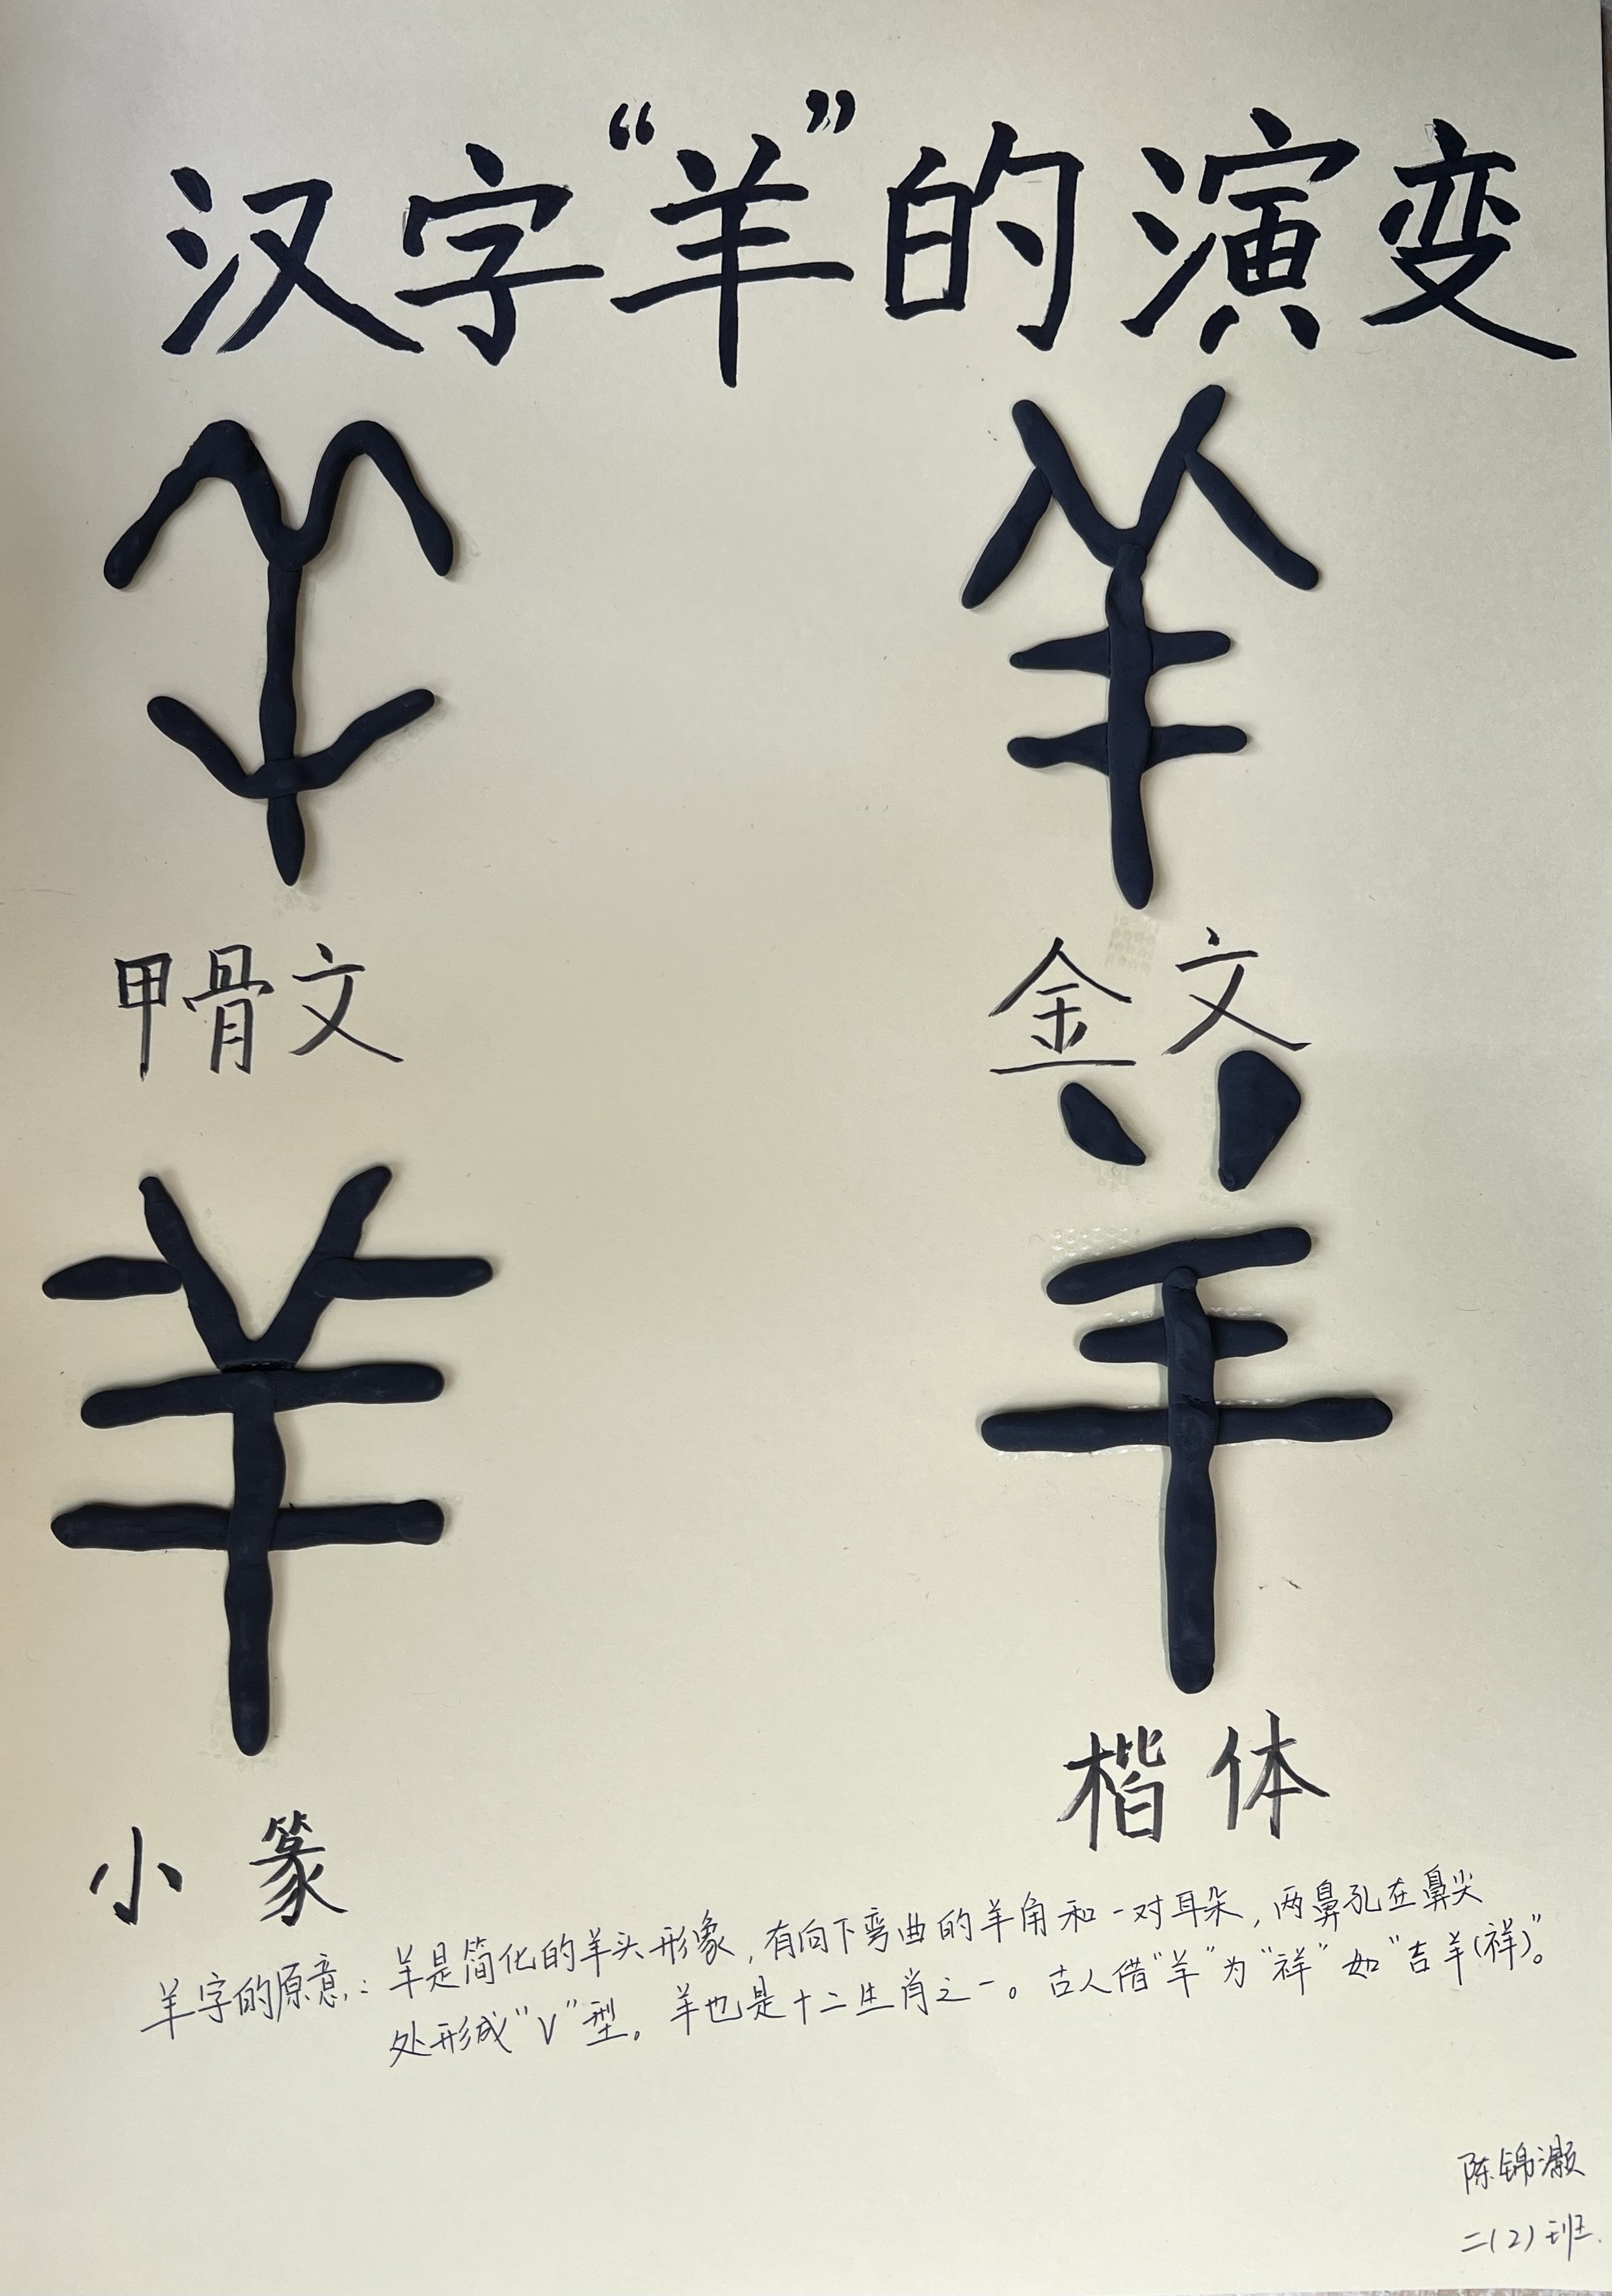 汉字“羊”的演变
甲骨文
金文
小篆
楷体
羊字的原意：羊是简化的羊头形象，有向下弯曲的羊角和一对耳朵，两鼻孔在鼻尖
处形成“V”型。羊也是十二生肖之一。古人借“羊”为“祥”如“吉羊(祥)”。
陈锦灏
二(2)班.